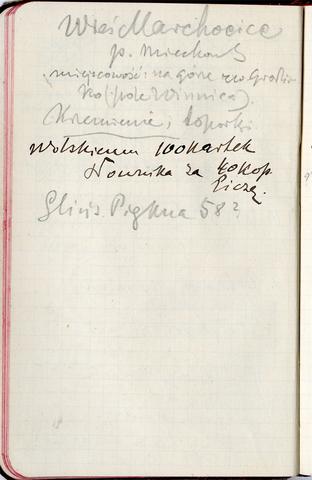 Wieś Marchocice
p. Miechow
miejscowość: na górze zw Grodzis
ko (: pole Winnica).
Krzemienie, toporki
Wolskiemu 100 kartek
Nownika za 40 kop.
liczą.
Glivis. Piękna 58?